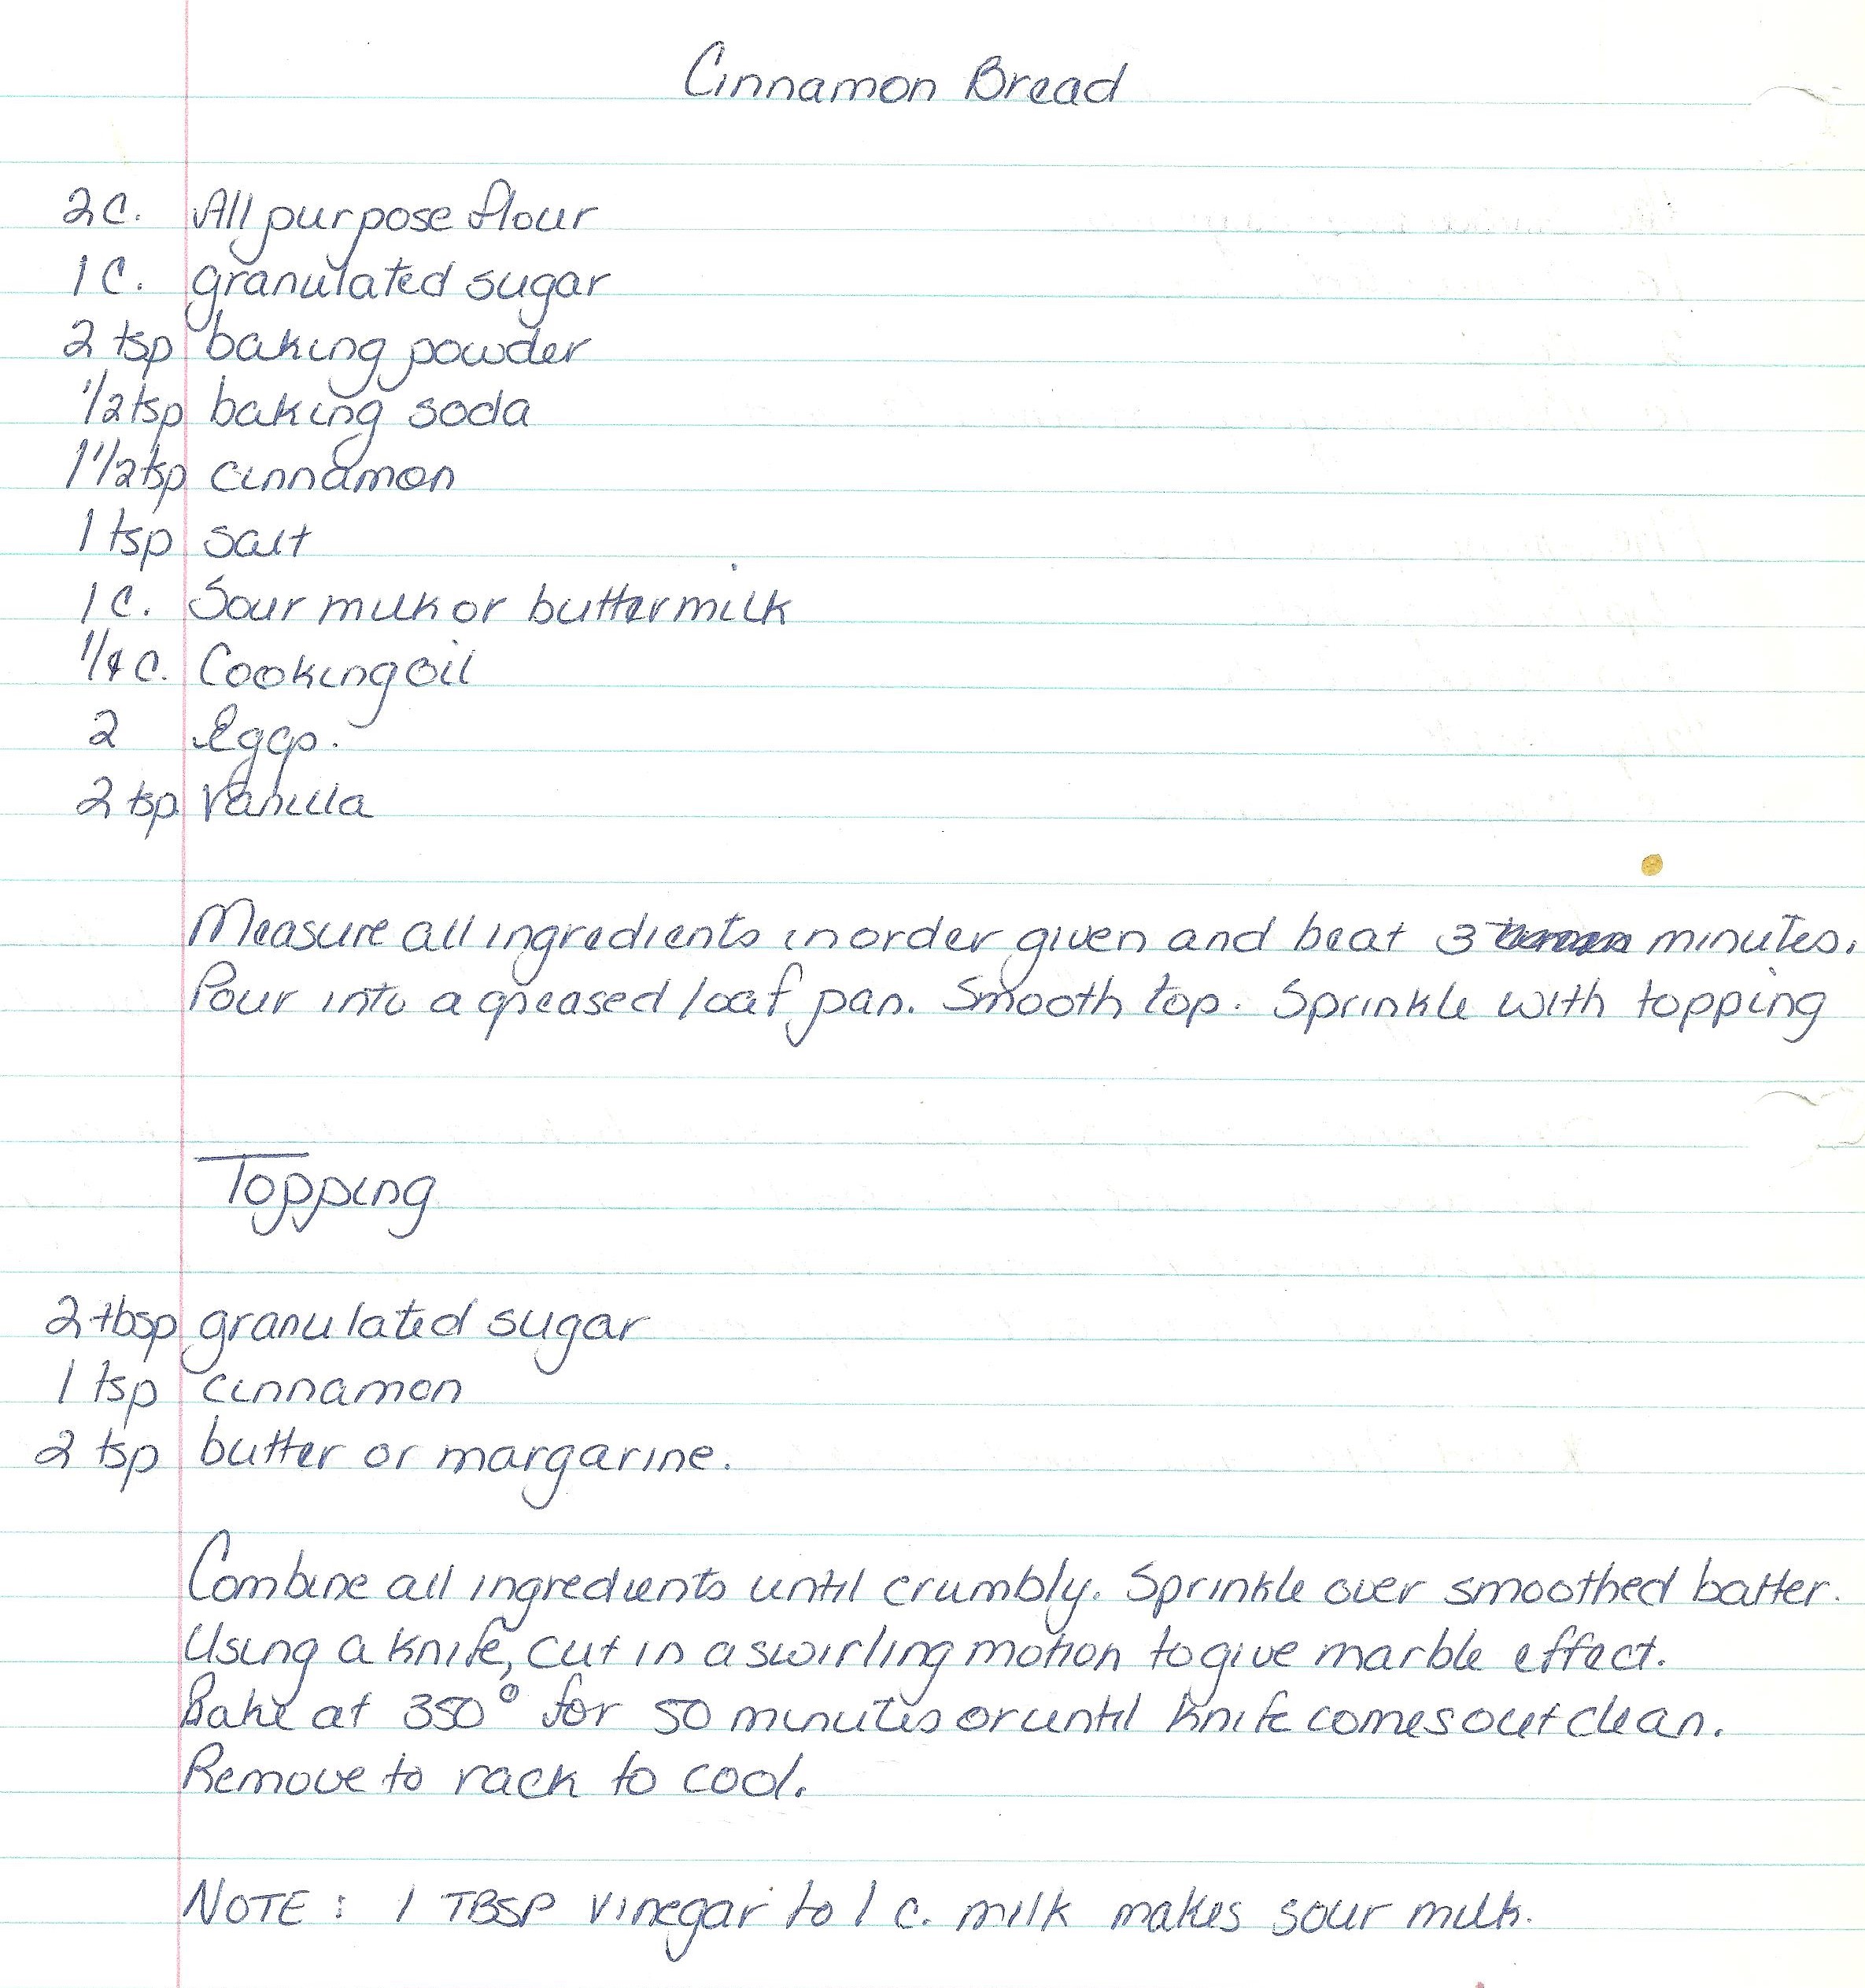 Cinnamon Bread
2 C. All purpose flour
1 C. granulated sugar
2 tsp baking powder
1/2 tsp baking soda
1 1/2 tsp cinnamon
1 tsp salt
1 C. Sour milk or buttermilk
1/4 C. Cooking oil
2 Eggs.
2 tsp. Vanilla
Measure all ingredients in order given and beat 3 minutes.
Pour into a greased loaf pan. Smooth top. Sprinkle with topping
Topping
2 tbsp granulated sugar
1 tsp cinnamon
2 tsp butter or margarine.
Combine all ingredients until crumbly. Sprinkle over smoothed batter.
Using a knife, cut in a swirling motion to give marble effect.
Bake at 350° for 50 minutes or until knife comes out clean.
Remove to rack to cool.
NOTE: 1 TBSP vinegar to 1 c. milk makes sour milk.